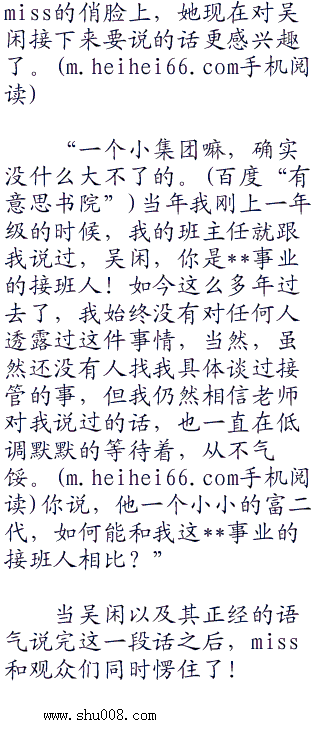 miss的俏脸上，她现在对吴
闲接下来要说的话更感兴趣
了。(m.heihei66.com手机阅
读)
“一个小集团嘛，确实
没什么大不了的。(百度“有
意思书院”)当年我刚上一年
级的时候，我的班主任就跟
我说过，吴闲，你是**事业
的接班人！如今这么多年过
去了，我始终没有对任何人
透露过这件事情，当然，虽
然还没有人找我具体谈过接
管的事，但我仍然相信老师
对我说过的话，也一直在低
调默默的等待着，从不气
馁。(m.heihei66.com手机阅
读)你说，他一个小小的富二
代，如何能和我这**事业的
接班人相比？”
当吴闲以及其正经的语
气说完这一段话之后，miss
和观众们同时愣住了！
www.shu008.com